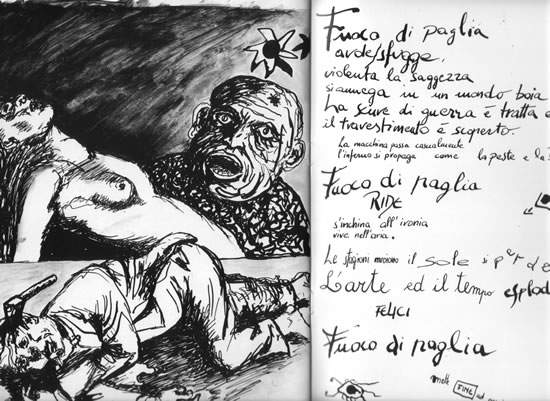 Fuoco di paglia
arde/sfugge,
violenta la saggezza
si annega in un mondo boia
La scure di guerra è tratta e
il travestimento è scoperto.
La macchina passa casualmente
l'inferno si propaga come la peste e la
Fuoco di paglia
RIDE
s'inchina all'ironia
vive nell'aria.
Le stagioni muoiono il sole si perde
L'arte ed il tempo esplod
FELICI
Fuoco di paglia
FINE